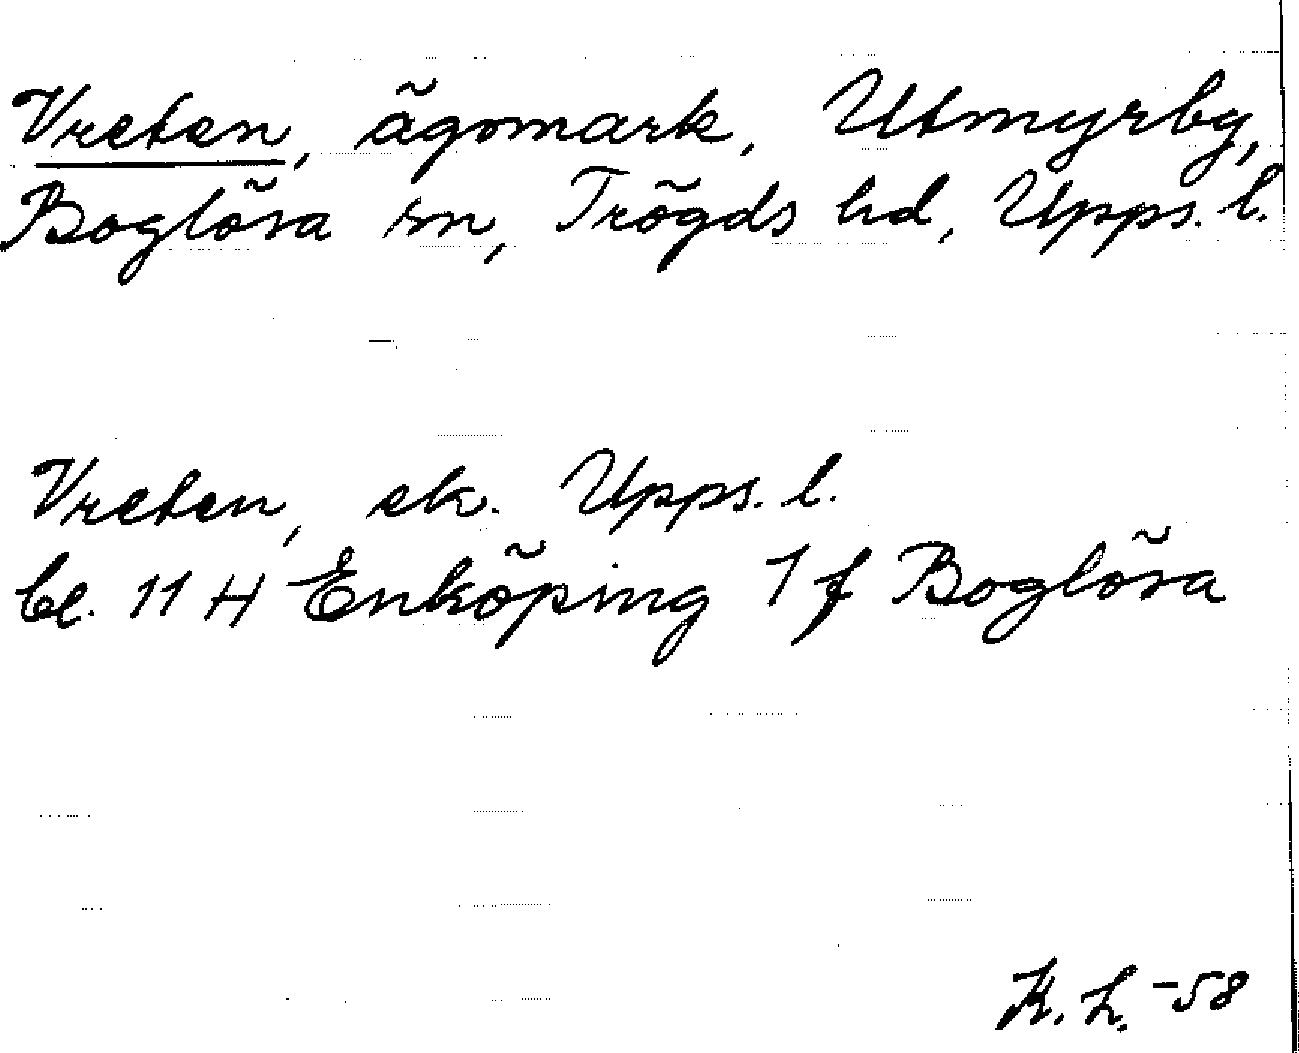 Vreten, ägomark, Utmyrby,
Boglösa sn, Trögds hd, Upps. l.
Vreten, ek. Upps. l.
bl. 11 H Enköping 1 f Boglösa
K. L. -58